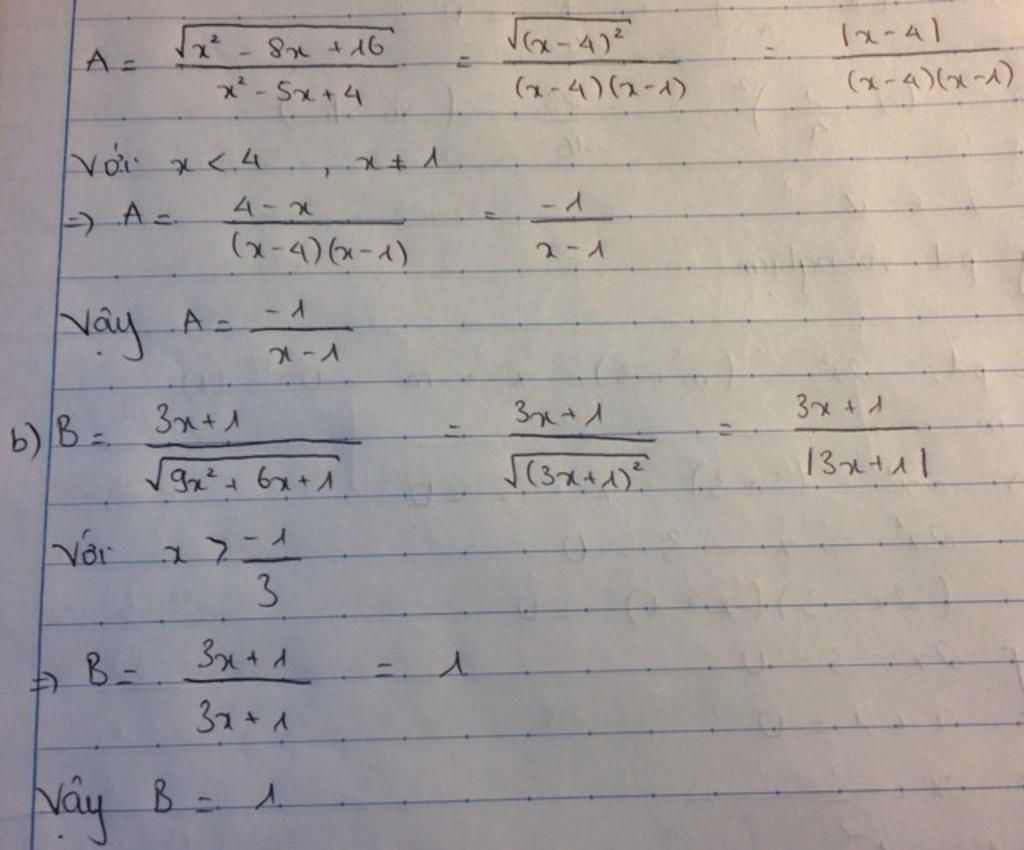 A = √(x² - 8x + 16) / (x² - 5x + 4) = √((x-4)²) / ((x-4)(x-1)) = |x-4| / ((x-4)(x-1))
Với x < 4 , x ≠ 1
⇒ A = (4 - x) / ((x-4)(x-1)) = -1 / (x-1)
Vậy A = -1 / (x-1)
b) B = (3x+1) / √(9x² + 6x + 1) = (3x+1) / √((3x+1)²) = (3x+1) / |3x+1|
Với x > -1/3
⇒ B = (3x+1) / (3x+1) = 1
Vậy B = 1